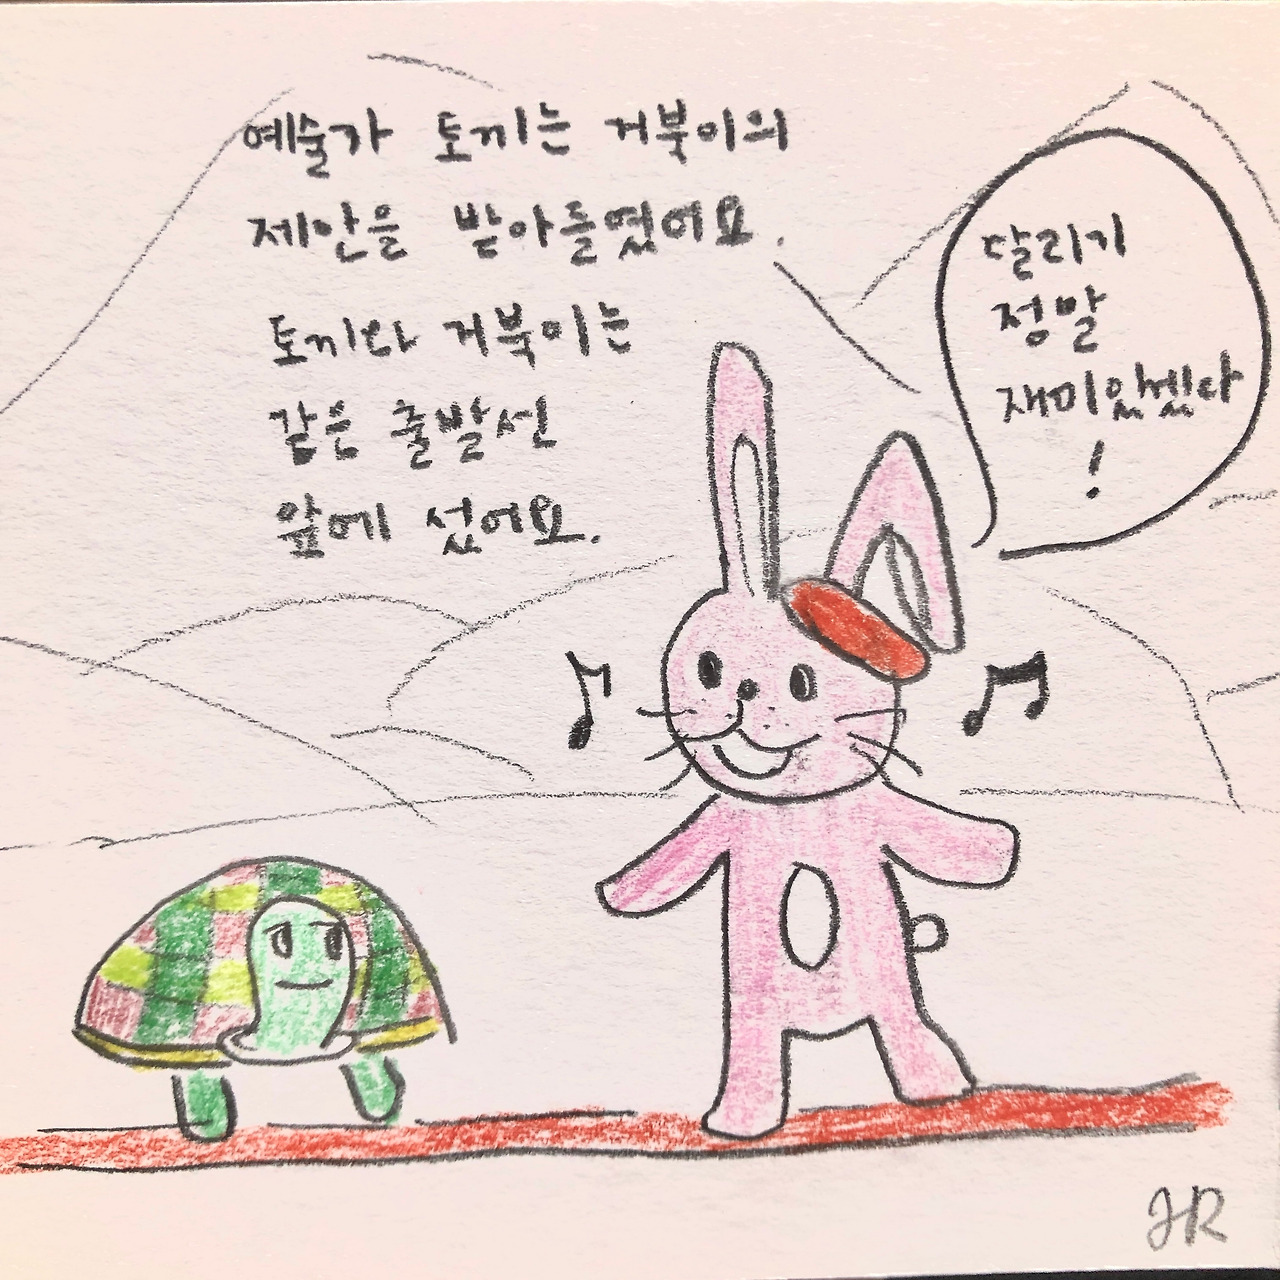 예술가 토끼는 거북이의
제안을 받아들였어요.
토끼와 거북이는
같은 출발선
앞에 섰어요.
달리기
정말
재미있겠다
!
JR